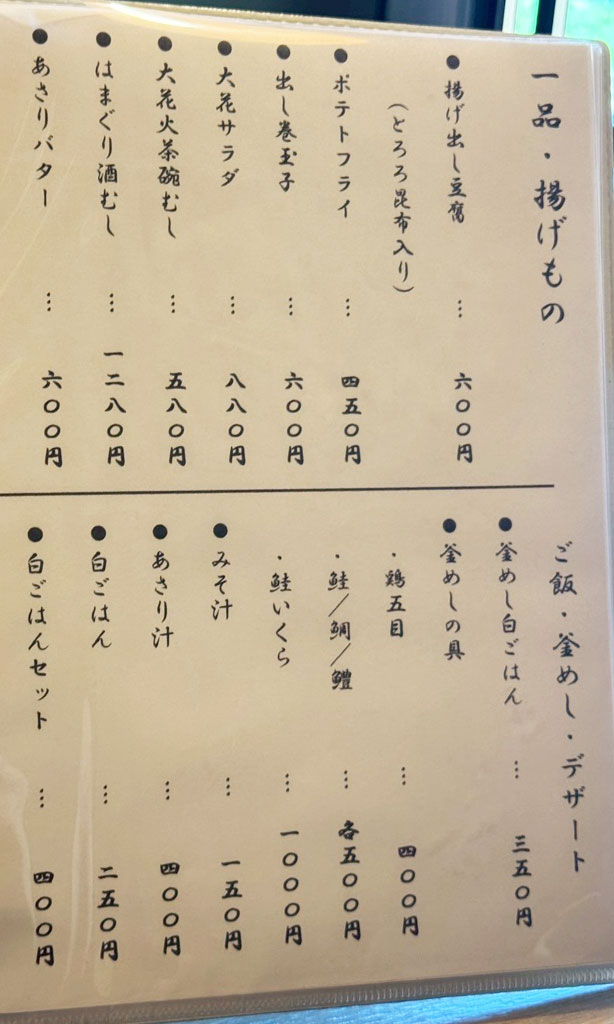 一品・揚げもの
●揚げ出し豆腐 … 六〇〇円
(とろろ昆布入り)
●ポテトフライ … 四五〇円
●出し巻玉子 … 六〇〇円
●大花サラダ … 八八〇円
●大花火茶碗むし … 五八〇円
●はまぐり酒むし … 一二八〇円
●あさりバター … 六〇〇円
ご飯・釜めし・デザート
●釜めし白ごはん … 三五〇円
●釜めしの具
・鶏五目 … 四〇〇円
・鮭/鯛/鱧 … 各五〇〇円
・鮭いくら … 一〇〇〇円
●みそ汁 … 一五〇円
●あさり汁 … 四〇〇円
●白ごはん … 二五〇円
●白ごはんセット … 四〇〇円